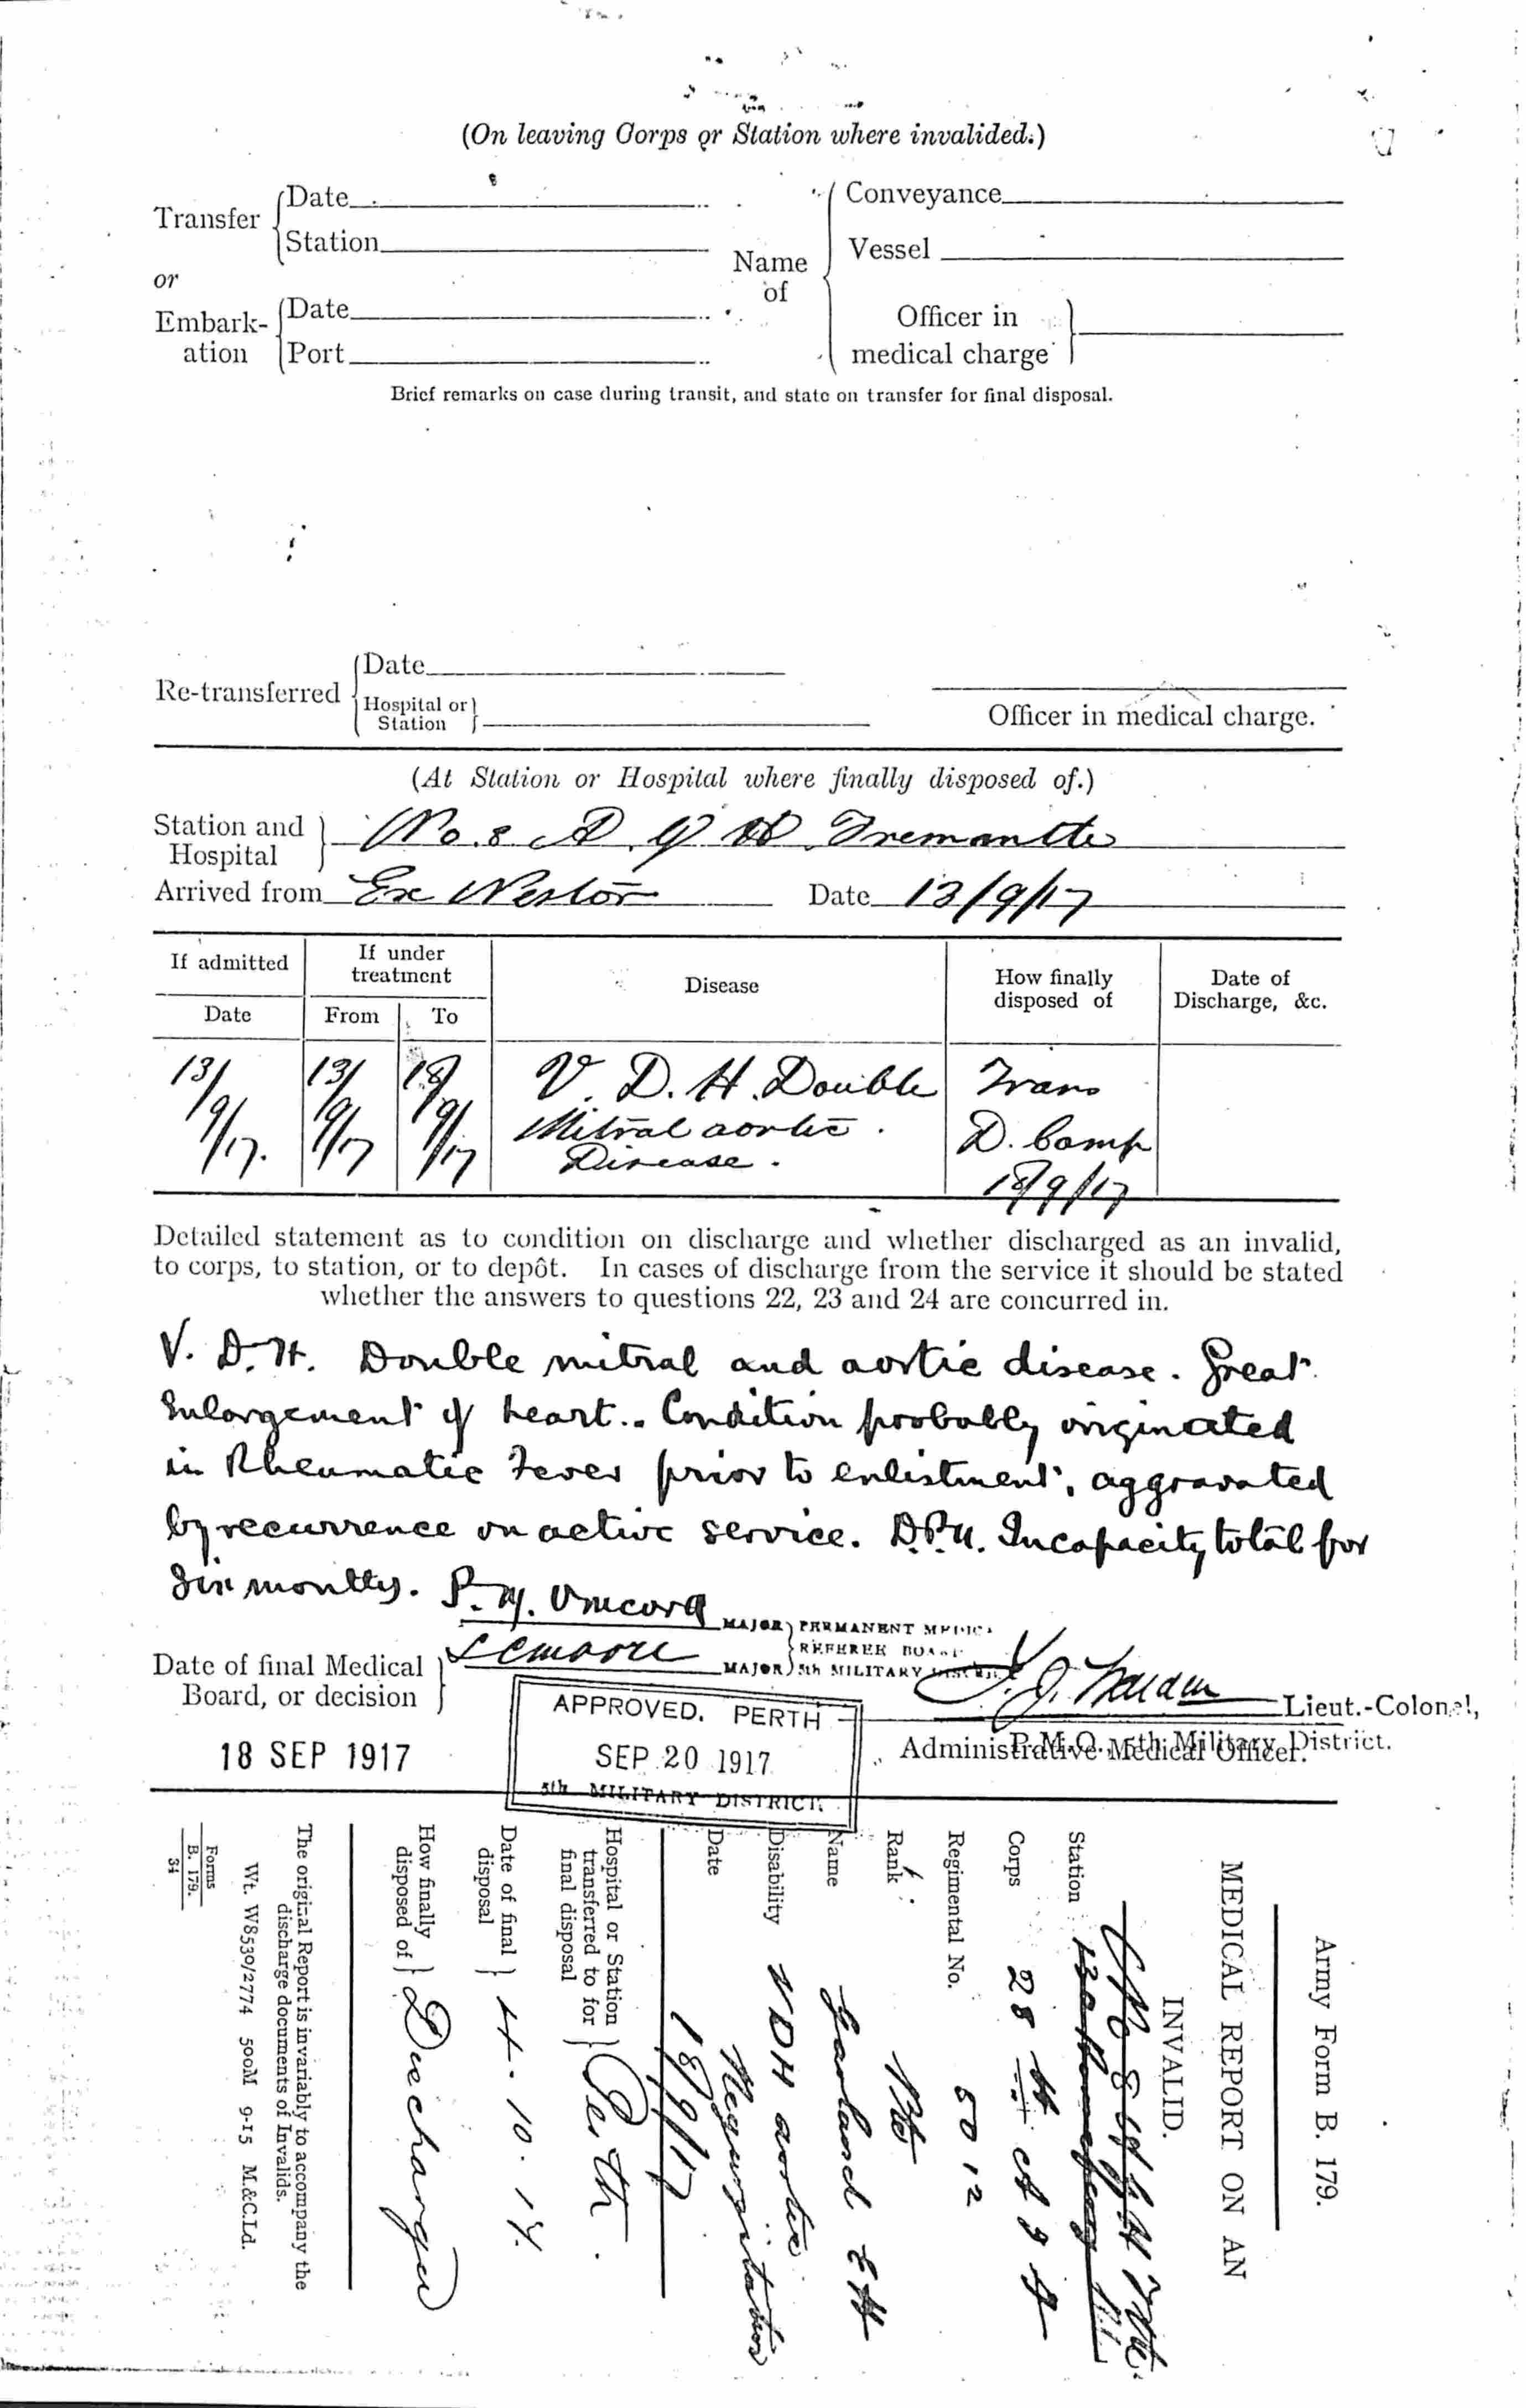 (On leaving Corps or Station where invalided.)
Transfer
Date
Station
or
Embark-
ation
Date
Port
Name
of
Conveyance
Vessel
Officer in
medical charge
Brief remarks on case during transit, and state on transfer for final disposal.
Re-transferred
Date
Hospital or
Station
Officer in medical charge.
(At Station or Hospital where finally disposed of.)
Station and
Hospital
No. 8 A. G H Fremantle
Arrived from Ex Nestor Date 13/9/17
If admitted
If under
treatment
Disease
How finally
disposed of
Date of
Discharge, &c.
Date From To
13/9/17. 13/9/17 18/9/17
V. D. H. Double
Mitral aortic.
Disease.
Trans
D. Camp
18/9/17
Detailed statement as to condition on discharge and whether discharged as an invalid,
to corps, to station, or to depôt. In cases of discharge from the service it should be stated
whether the answers to questions 22, 23 and 24 are concurred in.
V. D. H. Double mitral and aortic disease. Great
Enlargement of heart. Condition probably originated
in Rheumatic Fever prior to enlistment, aggravated
by recurrence on active service. D.P.U. Incapacity total for
six months.
MAJOR PERMANENT MEDICA
REFEREE BOARD
MAJOR 5th MILITARY DISTRICT
Date of final Medical
Board, or decision
18 SEP 1917
APPROVED. PERTH
SEP 20 1917
5th MILITARY DISTRICT.
Lieut.-Colonel,
P.M.O., 5th Military District.
Administrative Medical Officer.
Army Form B. 179.
MEDICAL REPORT ON AN
INVALID.
Station No 8 A G H Fltle.
Corps 28th A I F
Regimental No. 5012
Rank Pte
Name Garland E H
Disability V D H aortic
Regurgitation
Date 18/9/17
Hospital or Station
transferred to for
final disposal
Perth.
Date of final
disposal
4.10.17.
How finally
disposed of
Discharged
The original Report is invariably to accompany the
discharge documents of Invalids.
Wt. W8530/2774 500M 9-15 M.&C.Ld.
Forms
B. 179.
34